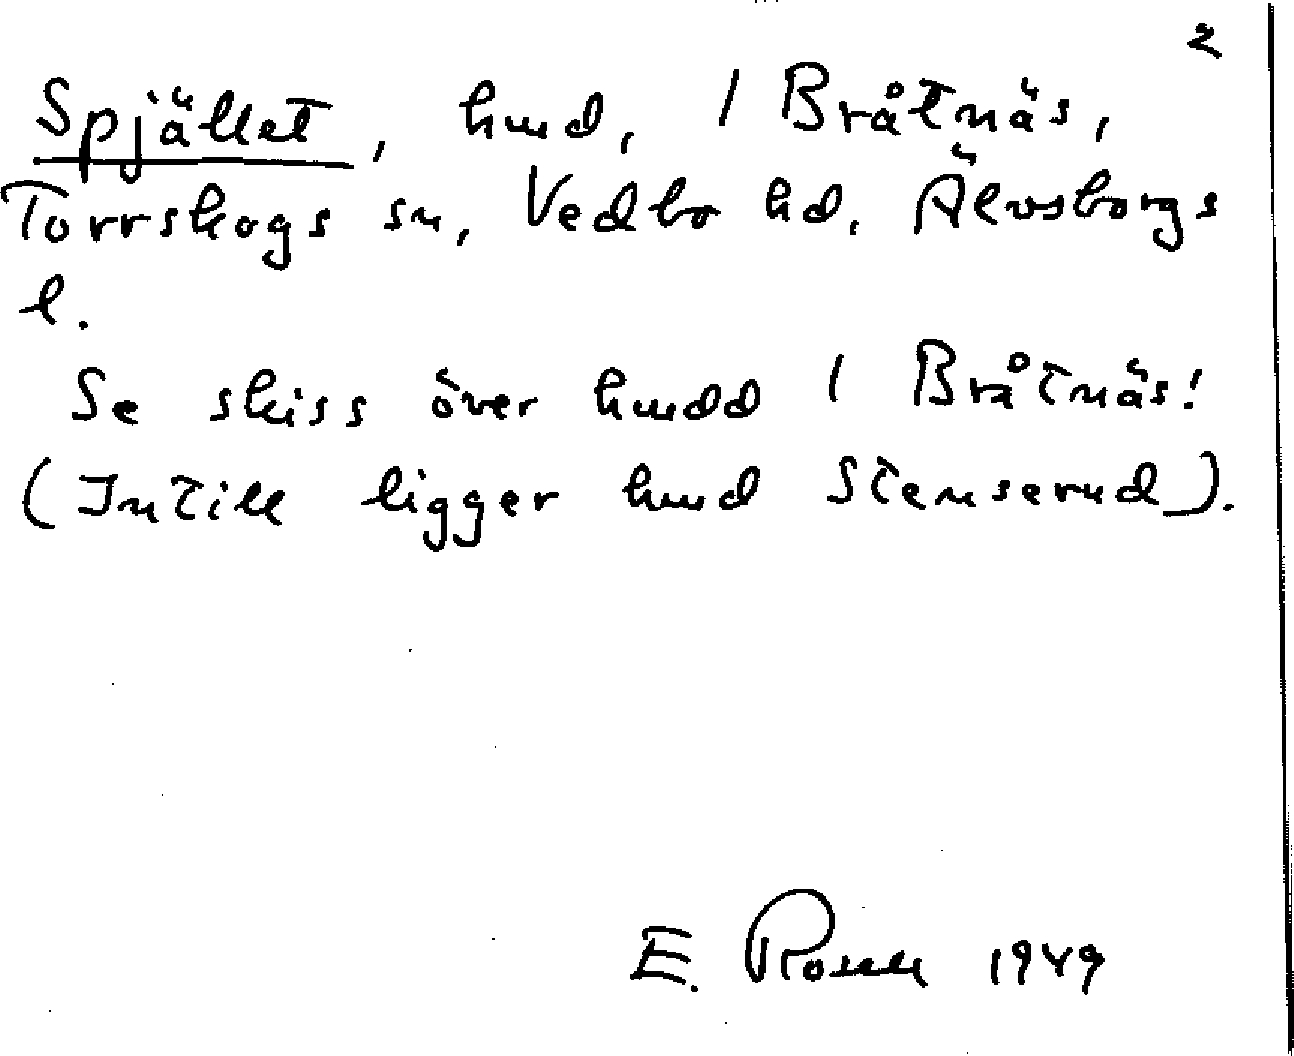 2
Spjället, hmd, / Bråtnäs,
Torrskogs sn, Vedbo hd, Älvsborgs
l.
Se skiss över hmdd / Bråtnäs!
(Intill ligger hmd Stenserud).
E. Rosell 1949